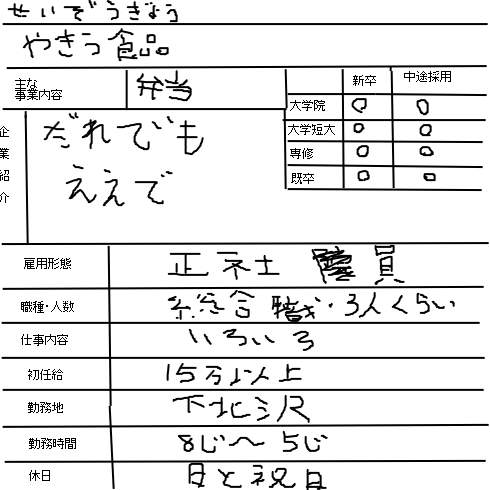 せいぞうぎょう
やきう食品
主な
事業内容
弁当
新卒 中途採用
大学院 ○ ○
大学短大 ○ ○
専修 ○ ○
既卒 ○ ○
企業紹介
だれでも
ええで
雇用形態 正社 員
職種・人数 総合職・3人くらい
仕事内容 いろいろ
初任給 15万以上
勤務地 下北沢
勤務時間 8じ～5じ
休日 日と祝日